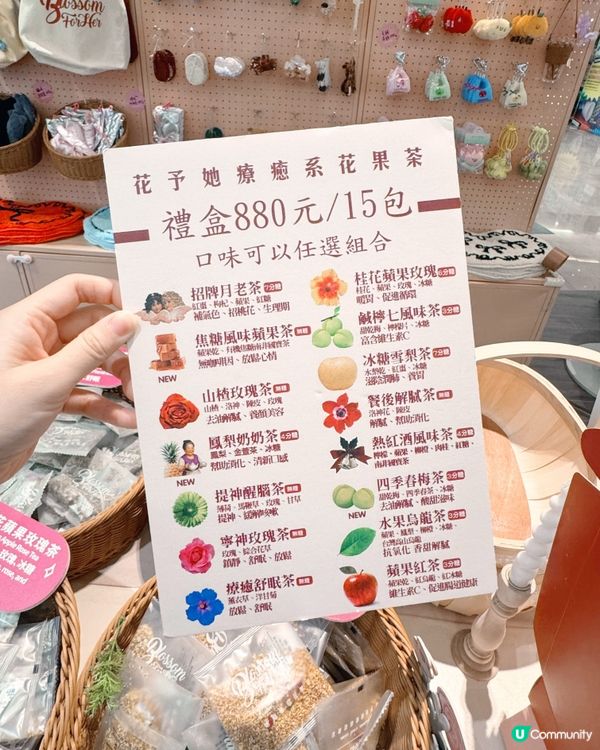 Blossom
ForHer
花予她療癒系花果茶
禮盒880元/15包
口味可以任選組合
招牌月老茶 7分糖
紅棗、枸杞、蘋果、紅糖
補氣色、招桃花、生理期
焦糖風味蘋果茶 無糖
蘋果乾、有機焦糖南非國寶茶
無咖啡因、放鬆心情
NEW
山楂玫瑰茶 無糖
山楂、洛神、陳皮、玫瑰
去油解膩、養顏美容
鳳梨奶奶茶 4分糖
鳳梨、金萱茶、冰糖
幫助消化、清新口感
NEW
提神醒腦茶 無糖
薄荷、馬鞭草、玫瑰、甘草
提神、緩解疲勞
寧神玫瑰茶 無糖
玫瑰、綜合花草
鎮靜、舒眠、放鬆
療癒舒眠茶 無糖
薰衣草、洋甘菊
放鬆、舒眠
桂花蘋果玫瑰 6分糖
桂花、蘋果、玫瑰、冰糖
暖胃、促進循環
鹹檸七風味茶 8分糖
甜乾梅、檸檬片、冰糖
富含維生素C
冰糖雪梨茶 7分糖
水梨乾、紅棗、冰糖
滋陰潤肺、養胃
餐後解膩茶 無糖
洛神花、陳皮
解膩、幫助消化
熱紅酒風味茶 4分糖
檸檬、蘋果、柳橙、肉桂、紅糖、
南非國寶茶
NEW
四季春梅茶 3分糖
甜乾梅、四季春茶、冰糖
去油解膩、酸甜滋味
NEW
水果烏龍茶 3分糖
蘋果、鳳梨、柳橙、冰糖、
台灣高山烏龍
抗氧化 香甜解膩
蘋果紅茶 3分糖
蘋果乾、紅烏龍、紅冰糖
維生素C、促進腸道健康
花蘋果玫瑰茶
Apple Rose Tea
玫瑰、冰糖
rose, and
Blossom
ForHer
U Community